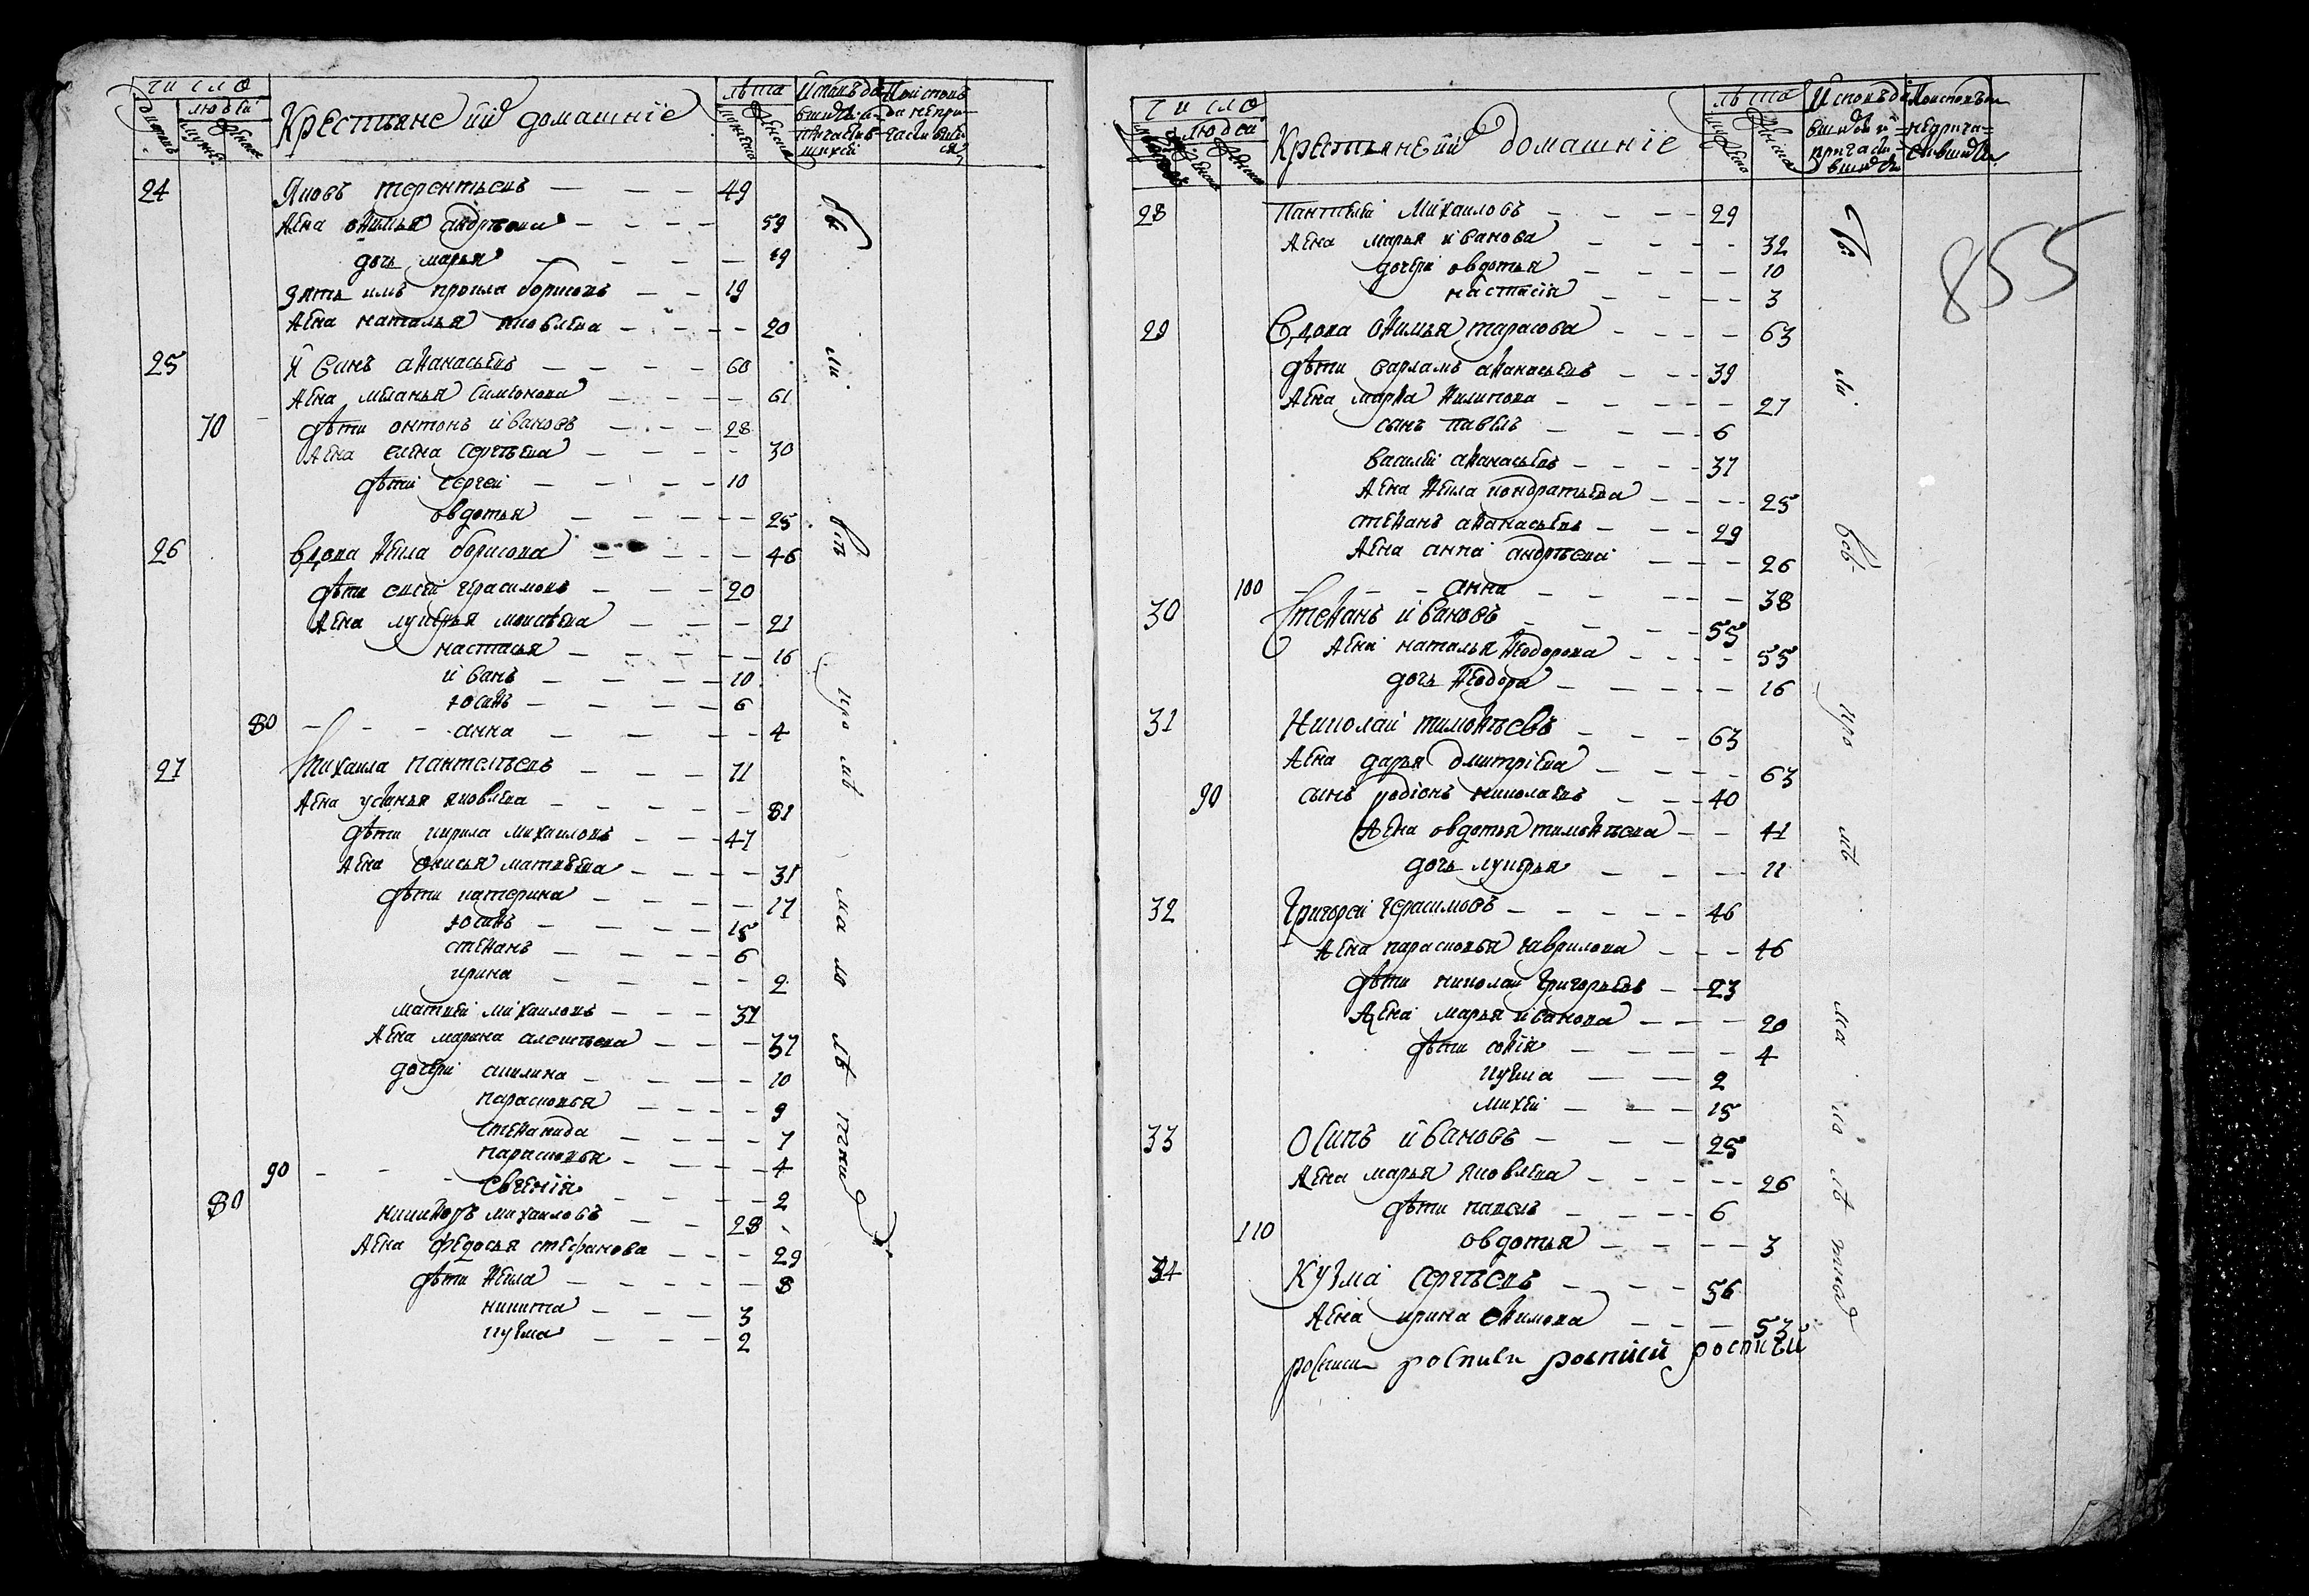 число
людей
Крестьяне и их домашние
лѣта
24 Яковъ терентьевъ — — — 49
жена офимья андрѣева — — — 59
дочь марья — — — 19
зять имъ кирила борисовъ — — 19
жена наталья яковлева — — — 20
25 и сакъ афанасьевъ — — — 60
жена меланья симионова — — — 61
70 — дѣти онтонъ ивановъ — — — 28
жена елена сергѣева — — — 30
дѣти сергеи — — — 10
овдотья — — — 25
26 вдова фекла борисова — — — 46
дѣти сисеи герасимовъ — — — 20
жена лукерья моисѣева — — — 21
настасья — — — 16
иванъ — — — 10
іосифъ — — — 6
80 — — — анна — — — 4
27 Михаила пантелѣевъ — — — 71
жена устинья яковлева — — — 81
дѣти кирила михаиловъ — — — 47
жена онисья матвѣева — — — 31
дѣти катерина — — — 17
іосифъ — — — 15
стефанъ — — — 6
ирина — — — 2
матвеи михаиловъ — — — 37
жена марина алексѣева — — — 37
дочери акилина — — — 10
парасковья — — — 9
стефанида — — — 7
парасковья — — — 4
90 — — — евгенія — — — 2
80 никифоръ михаиловъ — — 28
жена федосья стефанова — — — 29
дѣти фекла — — — 8
никита — — — 3
кузма — — — 2
число
людей
Крестьяне и их домашние
лѣта
855
28 Пантелеи Михаиловъ — — — 29
жена марья иванова — — — 32
дочери овдотья — — — 10
настасія — — — 3
29 Вдова офимья тарасова — — — 63
дѣти варламъ афанасьевъ — — — 39
жена марфа филипова — — — 27
сынъ павелъ — — — 6
василеи афанасьевъ — — — 37
жена фекла кондратьева — — — 25
стефанъ афанасьевъ — — — 29
жена анна андрѣева — — — 26
100 — — — анна — — — 38
30 Стефанъ ивановъ — — — 55
жена наталья феодорова — — — 55
дочь феодора — — — 16
31 Николаи тимофѣевъ — — — 63
жена дарья дмитріева — — — 63
90 сынъ родіонъ николаевъ — — — 40
жена овдотья тимофѣева — — 41
дочь лукерья — — — 11
32 Григореи герасимовъ — — — 46
жена парасковья гаврилова — — — 46
дѣти николаи григорьевъ — — 23
жена марья иванова — — — 20
дѣти софія — — — 4
кузма — — 2
михеи — — — 15
33 Осипъ ивановъ — — — 25
жена марья яковлева — — — 26
дѣти павелъ — — — 6
110 овдотья — — — 3
34 Кузма сергѣевъ — — — 56
жена ирина ефимова — — — 53
росписи росписи росписи росписи